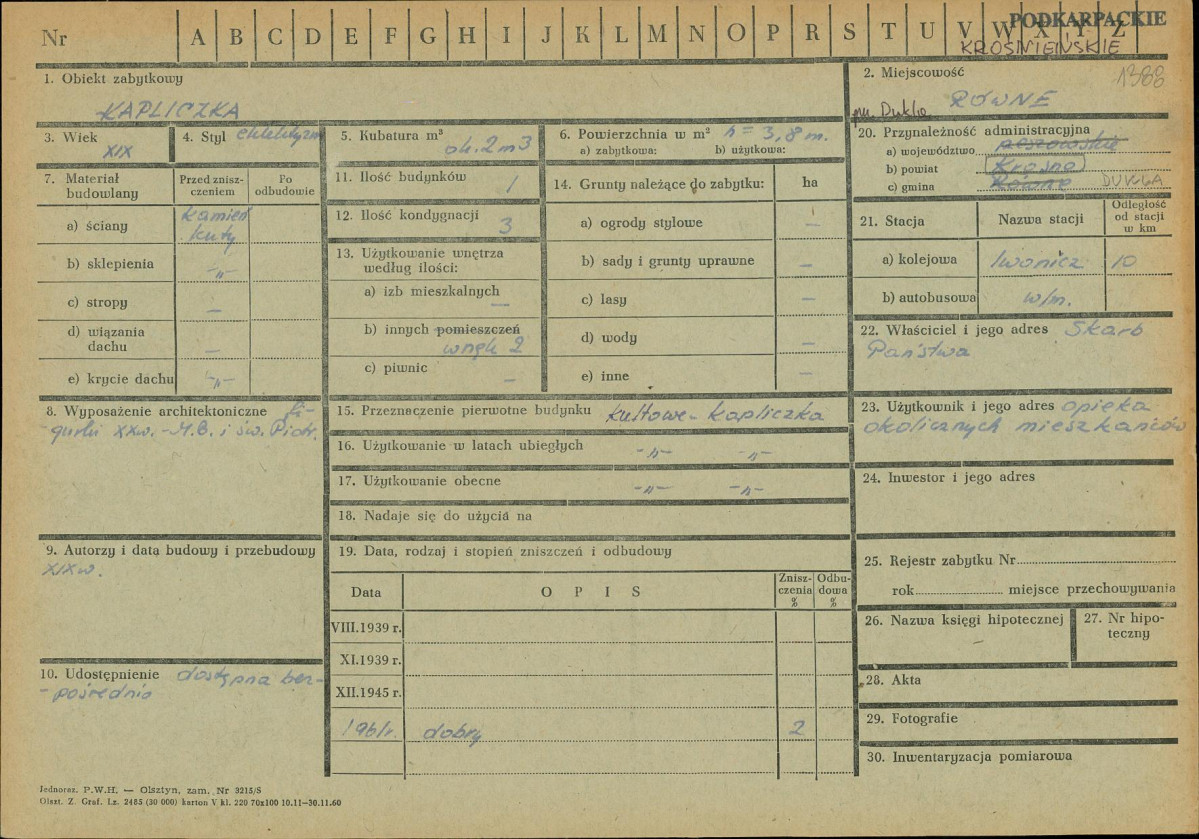 PODKARPACKIE
Nr A B C D E F G H I J K L M N O P R S T U V W X Y Z
KROŚNIEŃSKIE
1. Obiekt zabytkowy
KAPLICZKA
2. Miejscowość
1388
RÓWNE
3. Wiek
XIX
4. Styl eklektyzm
5. Kubatura m³
ok. 2 m3
6. Powierzchnia w m² h = 3,8 m.
a) zabytkowa: b) użytkowa:
20. Przynależność administracyjna
a) województwo rzeszowskie
b) powiat Krosno
c) gmina Równe DUKLA
7. Materiał budowlany
Przed zniszczeniem
Po odbudowie
a) ściany kamień kuty
b) sklepienia -"-
c) stropy –
d) wiązania dachu –
e) krycie dachu -"-
11. Ilość budynków 1
12. Ilość kondygnacji 3
13. Użytkowanie wnętrza według ilości:
a) izb mieszkalnych –
b) innych pomieszczeń
wnęk 2
c) piwnic –
14. Grunty należące do zabytku: ha
a) ogrody stylowe –
b) sady i grunty uprawne –
c) lasy –
d) wody –
e) inne –
21. Stacja Nazwa stacji Odległość od stacji w km
a) kolejowa Iwonicz 10
b) autobusowa w/m.
22. Właściciel i jego adres Skarb
Państwa
8. Wyposażenie architektoniczne fi-
gurki XXw. - M.B. i św. Piotr.
15. Przeznaczenie pierwotne budynku kultowe - kapliczka
16. Użytkowanie w latach ubiegłych -"- -"-
17. Użytkowanie obecne -"- -"-
18. Nadaje się do użycia na
23. Użytkownik i jego adres opieka
okolicznych mieszkańców
24. Inwestor i jego adres
9. Autorzy i data budowy i przebudowy
XIXw.
19. Data, rodzaj i stopień zniszczeń i odbudowy
Data O P I S Zniszczenia % Odbudowa %
VIII.1939 r.
XI.1939 r.
XII.1945 r.
1961r. dobry 2
25. Rejestr zabytku Nr
rok miejsce przechowywania
26. Nazwa księgi hipotecznej
–
27. Nr hipoteczny
10. Udostępnienie dostępna bez-
-pośrednio
28. Akta
29. Fotografie
30. Inwentaryzacja pomiarowa
Jednoraz. P.W.H. — Olsztyn, zam. Nr 3215/S
Olszt. Z. Graf. Lz. 2485 (30 000) karton V kl. 220 70x100 10.11—30.11.60